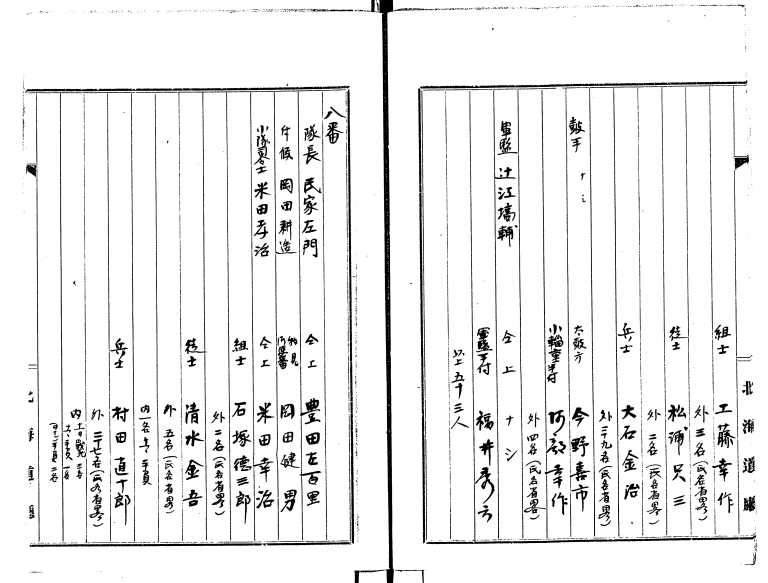 組士 工藤幸作
外三名(氏名省畧)
徒士 松浦只三
外二名(氏名省畧)
兵士 大石金治
外三十九名(氏名省畧)
鼓手 ナシ
太鼓方 今野喜市
小輜重手付 阿部幸作
外四名(氏名省畧)
軍監 辻江塙輔
仝上 ナシ
軍監手付 福井秀云
以上五十三人
北海道廳
八番
隊長 民家左門
仝上 豊田左百里
斥候 岡田耕造
岡田健男
小隊司令士 米田孝治
仝上 米田幸治
組士 石塚徳三郎
外二名(氏名省畧)
徒士 清水金吾
外五名(氏名省畧)
内一名手負
兵士 村田直十郎
外三十七名(氏名省畧)